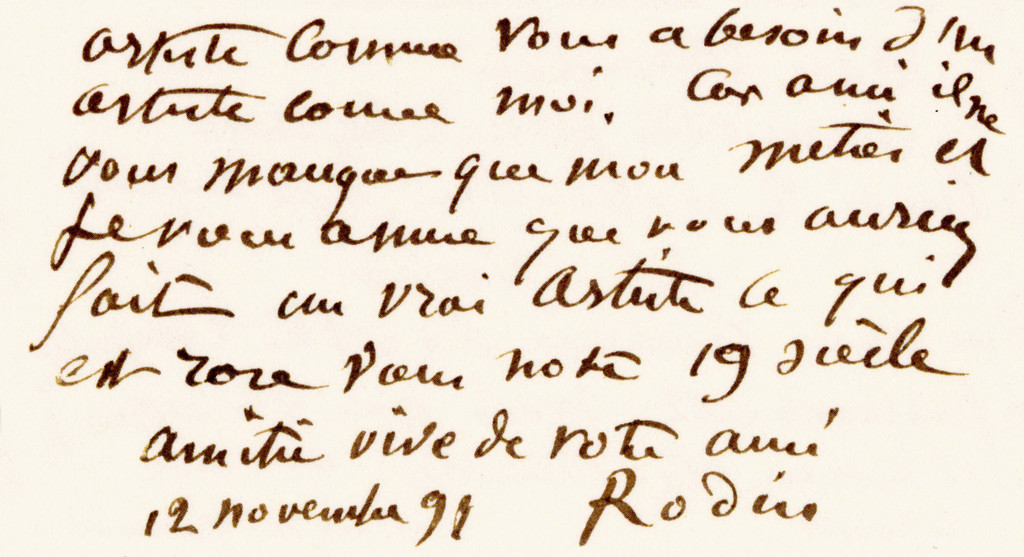 artiste comme vous a besoin d'un
artiste comme moi. Car ami il ne
vous manque que mon métier et
je vous assure que vous auriez
fait un vrai artiste ce qui
est rare dans notre 19 siècle
amitié vive de votre ami
12 novembre 91 Rodin